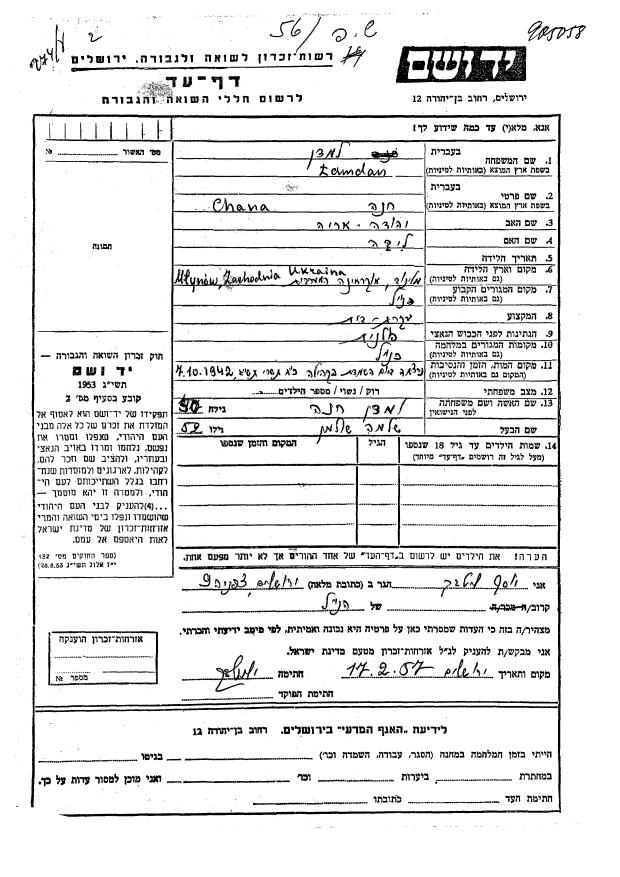 2
56/ש.פ
905058
יד ושם
ירושלים, רחוב בן־יהודה 12
רשות־זכרון לשואה ולגבורה, ירושלים
דף־עד
לרשום חללי השואה והגבורה
אנא, מלא(י) עד כמה שידוע לך!
מס׳ האשור
№
תמונה
1. שם המשפחה בעברית למדן
בשפת ארץ המוצא (באותיות לטיניות) Lamdan
2. שם פרטי בעברית חנה
בשפת ארץ המוצא (באותיות לטיניות) Chana
3. שם האב יהודה-אריה
4. שם האם
5. תאריך הלידה
6. מקום וארץ הלידה Młynów, Zachodnia Ukraina
(גם באותיות לטיניות) מלינוב, אוקראינה המערבית
7. מקום המגורים הקבוע כנ״ל
(גם באותיות לטיניות)
8. המקצוע עקרת-בית
9. הנתינות לפני הכבוש הנאצי פולנית
10. מקומות המגורים במלחמה כנ״ל
(גם באותיות לטיניות)
11. מקום המות, הזמן והנסיבות ביום השמדת הקהילה כ״ו תשרי תש״ג, 7.10.1942
(המקום גם באותיות לטיניות)
12. מצב משפחתי רווק / נשוי / מספר הילדים
13. שם האשה ושם משפחתה למדן חנה גילה 50
לפני הנישואין
שם הבעל שלמה גילו 52
14. שמות הילדים עד גיל 18 שנספו
(מעל לגיל זה רושמים ״דף־עד״ מיוחד)
הגיל
המקום והזמן שנספו
הערה! את הילדים יש לרשום ב״דף־העד״ של אחד ההורים אך לא יותר מפעם אחת.
תוק זכרון השואה והגבורה —
יד ושם
תשי״ג 1953
קובע בסעיף מס׳ 2
תפקידו של יד־ושם הוא לאסוף אל
המולדת את זכרם של כל אלה מבני
העם היהודי, שנפלו ומסרו את
נפשם, נלחמו ומרדו באויב הנאצי
ובעוזריו, ולהציב שם וזכר להם,
לקהילות, לארגונים ולמוסדות שנח־
רבו בגלל השתייכותם לעם הי־
הודי, ולמטרה זו יהא מוסמך —
...(4) להעניק לבני העם היהודי
שהושמדו ונפלו בימי השואה והמרי
אזרחות־זכרון של מדינת ישראל
לאות היאספם אל עמם.
(ספר החוקים מס׳ 132
י״ז אלול תשי״ג 28.8.53)
אני יוסף הגר ב (כתובת מלאה) ירושלים צפניה 9
קרוב/ה מכר/ה של הנ״ל
מצהיר/ה בזה כי העדות שמסרתי כאן על פרטיה היא נכונה ואמיתית, לפי מיטב ידיעתי והכרתי.
אני מבקש/ת להעניק לנ״ל אזרחות־זכרון מטעם מדינת ישראל.
מקום ותאריך ירושלים 17.2.57 חתימה
חתימת הפוקד
אזרחות־זכרון הוענקה
מספר №
לידיעת ״האגף המדעי״ בירושלים, רחוב בן־יהודה 12
הייתי בזמן המלחמה במחנה (הסגר, עבודה, השמדה וכו׳) בגיטו
במחתרת ביערות וכו׳ ואני מוכן למסור עדות על כך.
חתימת העד כתובתו